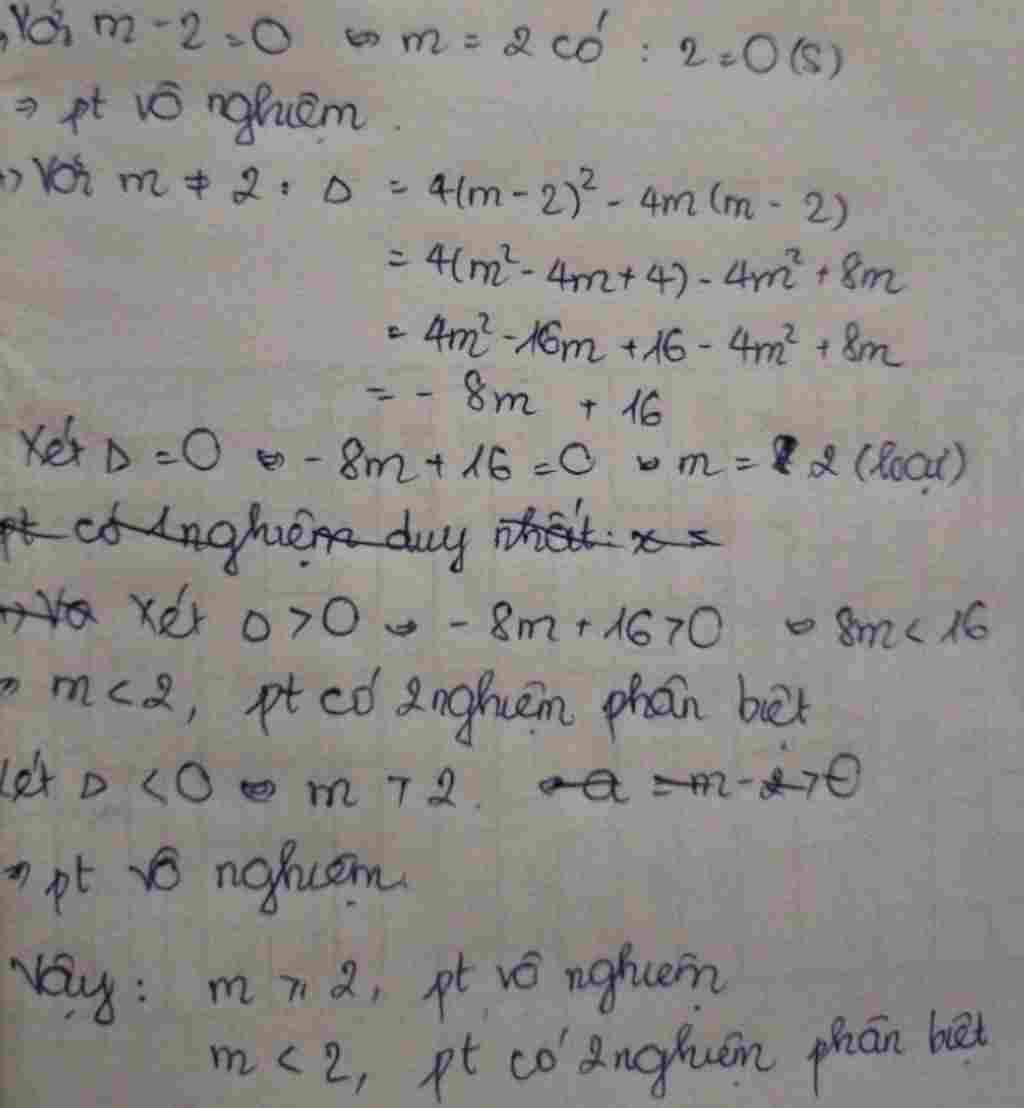 Với m - 2 = 0 ⇔ m = 2 có : 2 = 0 (S)
⇒ pt vô nghiệm.
Với m ≠ 2 : Δ = 4(m - 2)² - 4m (m - 2)
= 4(m² - 4m + 4) - 4m² + 8m
= 4m² - 16m + 16 - 4m² + 8m
= - 8m + 16
Xét Δ = 0 ⇔ - 8m + 16 = 0 ⇔ m = 2 (loại)
pt có 1 nghiệm duy nhất: x =
Xét Δ > 0 ⇔ - 8m + 16 > 0 ⇔ 8m < 16
⇒ m < 2, pt có 2 nghiệm phân biệt
Xét Δ < 0 ⇔ m > 2. a = m - 2 > 0
⇒ pt vô nghiệm.
Vậy : m ≥ 2, pt vô nghiệm
m < 2, pt có 2 nghiệm phân biệt